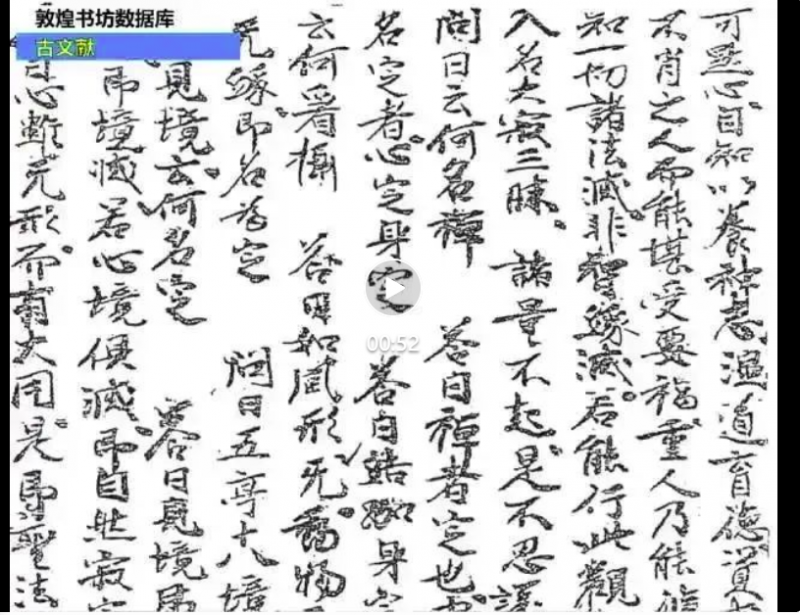 敦煌书坊数据库
古文献
可默心自知以養神志温道育德資
不肖之人而能堪受要福重人乃能
知一切諸法滅非智緣滅若能行此觀
入名大寂三昧 諸量不起是不忍
問曰云何名禪 答曰禪者定也
名定者心定身定 答曰結跏身
云何看攝 答曰如風形无動物
无緣即名為定 問曰五亭十八境
見境云何名定 答曰見境即
即境滅若心境俱滅即自然寂
息雖无形而有大用是即聖法
00:52